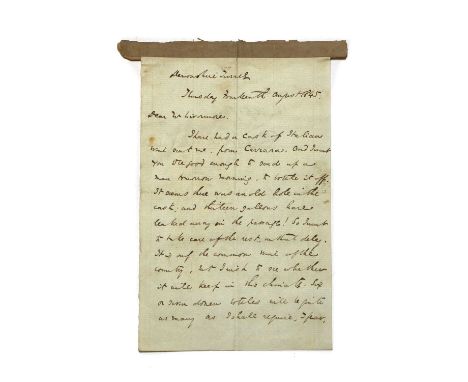 Devonshire Terrace
Thursday Fourteenth August 1845.
Dear Mr Livermore.
I have had a cask of Italian
wine sent me, from Carrara. And I want
you to be good enough to send up a
man tomorrow morning, to bottle it off.
It seems there was an old hole in the
cask, and thirteen gallons have
leaked away on the passage! So I want
to take care of the rest, without delay.
It is only the common wine of the
country, but I wish to see whether
it will keep in this climate. Six
or seven dozen bottles will be quite
as many as I shall require,